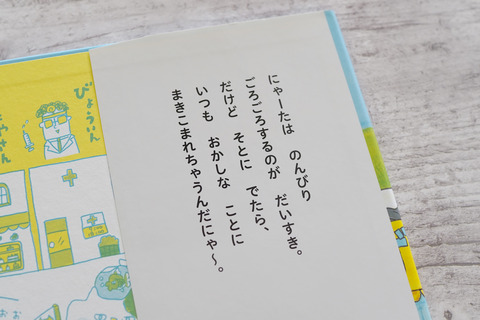 にゃーたは　のんびり
ごろごろするのが　だいすき。
だけど　そとに　でたら、
いつも　おかしな　ことに
まきこまれちゃうんだにゃ～。
びょういん